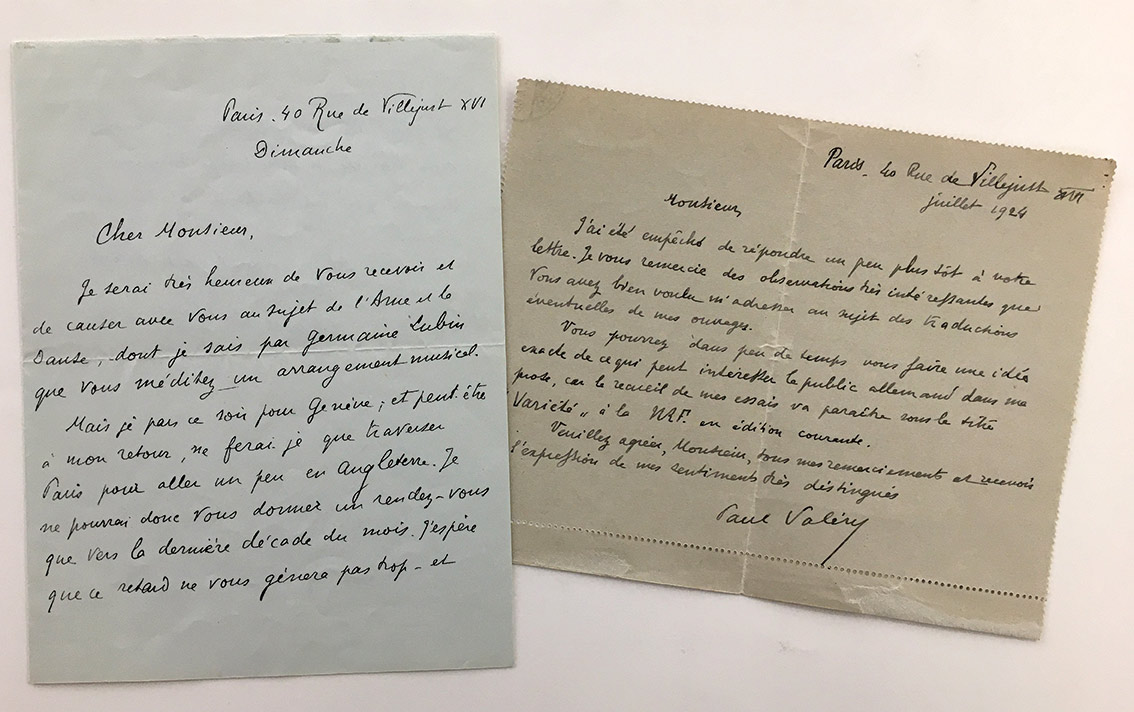 Paris. 40 Rue de Villejust XVI
Dimanche
Cher Monsieur,
Je serai très heureux de vous recevoir et
de causer avec vous au sujet de l'Ame et la
Danse, dont je sais par Germaine Lubin
que vous méditez un arrangement musical.
Mais je pars ce soir pour Genève; et peut-être
à mon retour, ne ferai je que traverser
Paris pour aller un peu en Angleterre. Je
ne pourrai donc vous donner un rendez-vous
que vers la dernière décade du mois. J'espère
que ce retard ne vous gênera pas trop - et
Paris. 40 Rue de Villejust XVI
juillet 1924
Monsieur,
J'ai été empêché de répondre un peu plus tôt à votre
lettre. Je vous remercie des observations très intéressantes que
vous avez bien voulu m'adresser au sujet des traductions
éventuelles de mes ouvrages.
Vous pourrez dans peu de temps vous faire une idée
exacte de ce qui peut intéresser le public allemand dans ma
prose, car le recueil de mes essais va paraître sous le titre
Variété" à la NRF. en édition courante.
Veuillez agréer, Monsieur, tous mes remerciements et recevoir
l'expression de mes sentiments très distingués
Paul Valéry